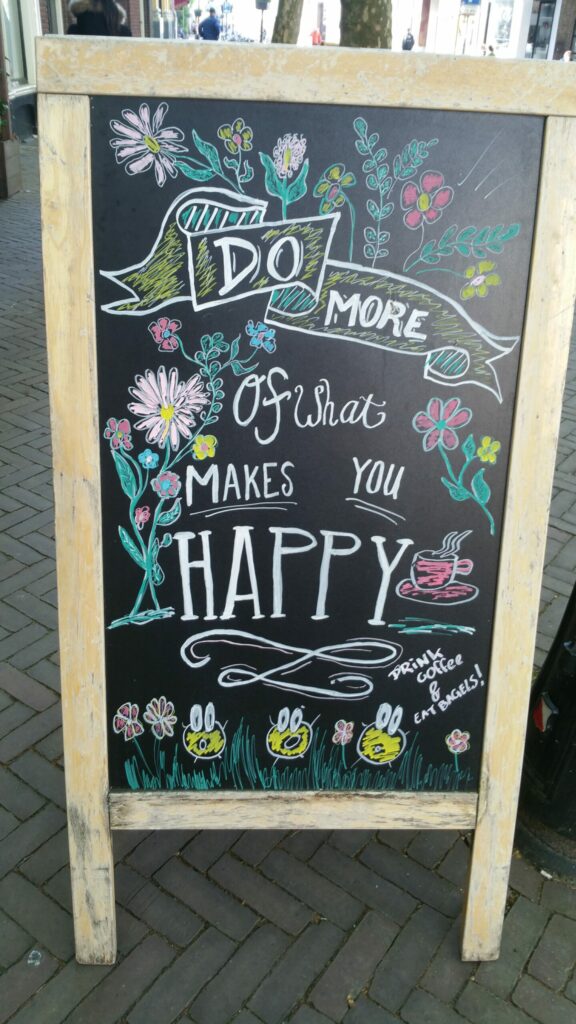 DO
MORE
Of What
MAKES YOU
HAPPY
DRINK
Coffee
&
EAT BAGELS!